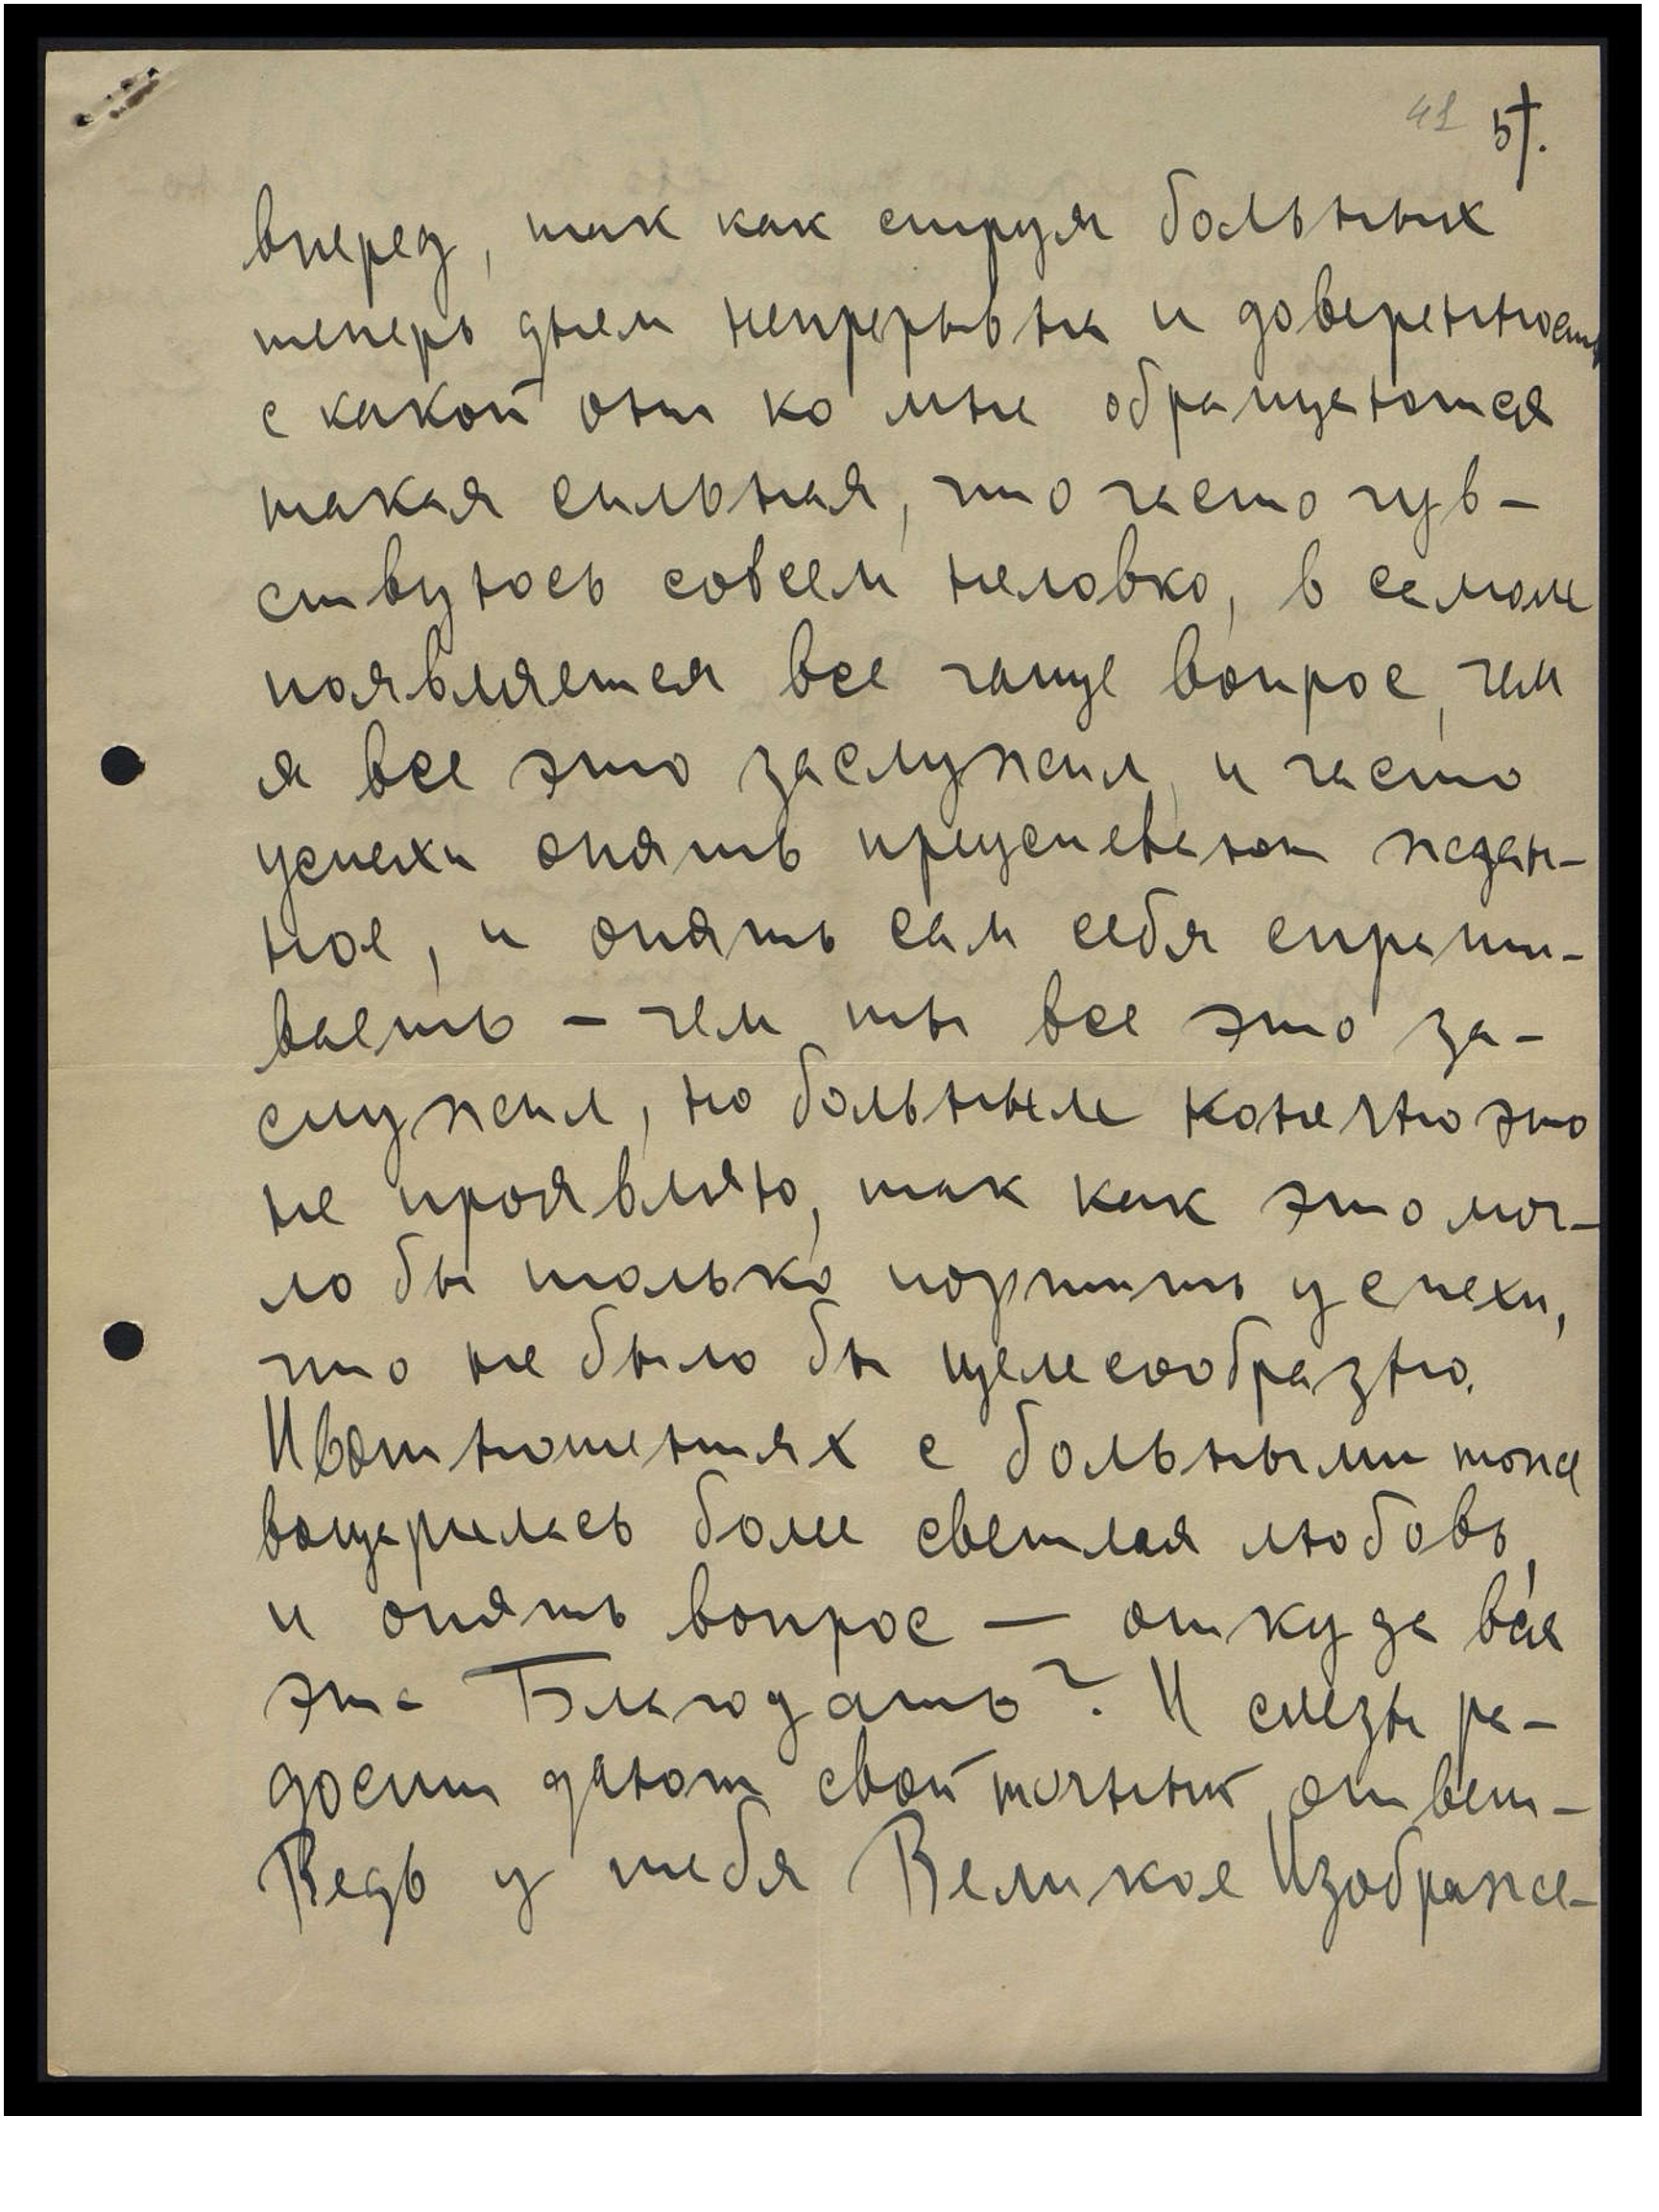 41 5).
вперед, так как струя больных
теперь днем непрерывна и доверенность
с какой они ко мне обращаются
такая сильная, что часто чув-
ствуюсь совсем неловко, в самом
появляется все чаще вопрос, чем
я все это заслужил, и часто
успехи опять преуспевают ждан-
ное, и опять сам себя спраши-
ваешь – чем ты все это за-
служил, но больным конечно это
не проявляю, так как это мог-
ло бы только портить успехи,
что не было бы целесообразно.
И в отношениях с больными тоже
воцарилась более светлая любовь,
и опять вопрос — откуда вся
эта Благодать? И слезы ра-
дости дают свой точный ответ –
Ведь у тебя Великое Изображе-